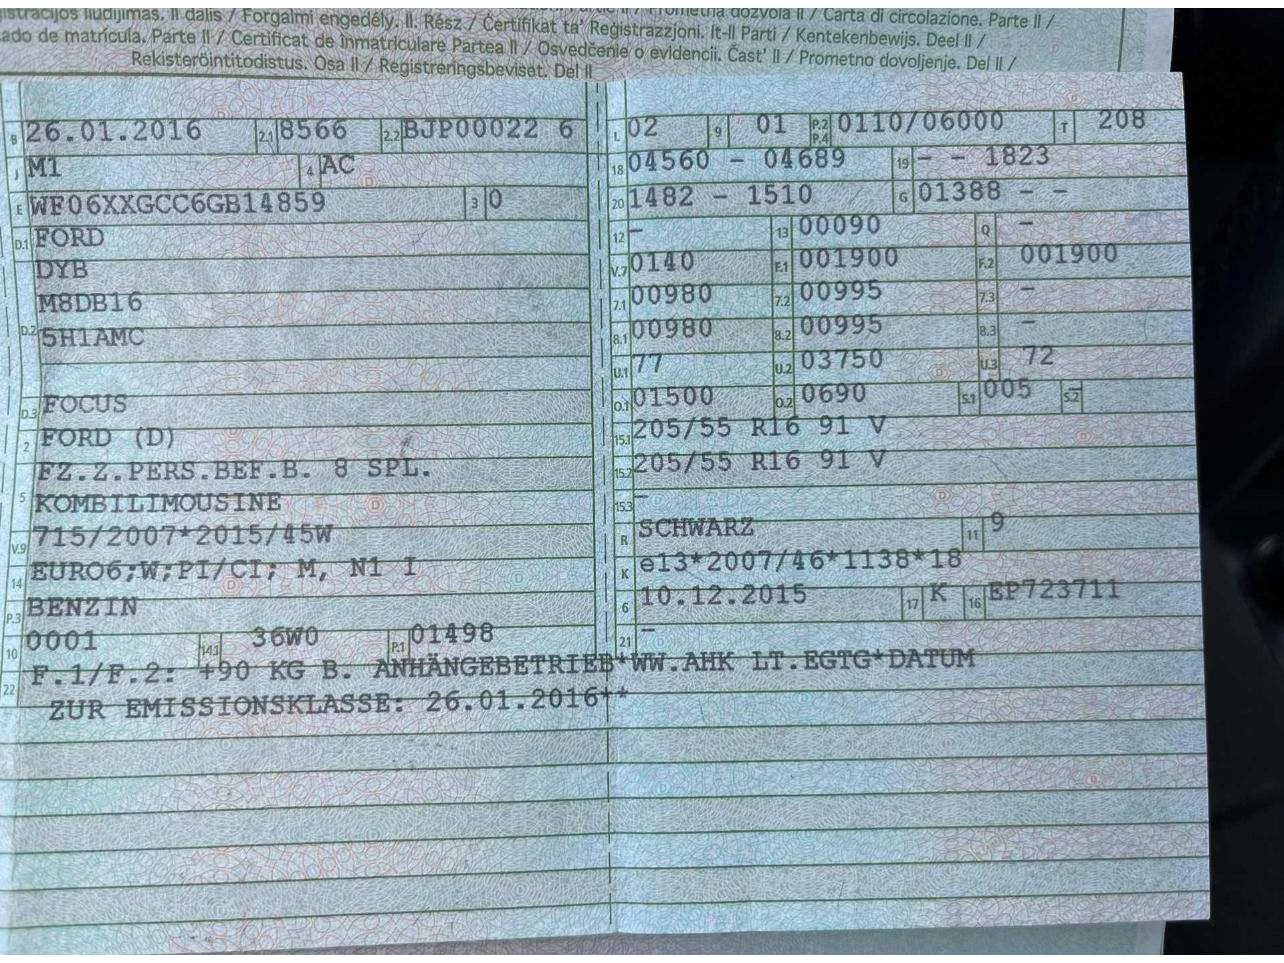 istracijos liudijimas. II dalis / Forgalmi engedély. II. Rész / Ċertifikat ta' Reġistrazzjoni. It-II Parti / Kentekenbewijs. Deel II /
Prometna dozvola II / Carta di circolazione. Parte II /
ado de matrícula. Parte II / Certificat de înmatriculare Partea II / Osvedčenie o evidencii. Časť II / Prometno dovoljenje. Del II /
Rekisteröintitodistus. Osa II / Registreringsbeviset. Del II
B 26.01.2016 2.1 8566 2.2 BJP00022 6
J M1 4 AC
E WF06XXGCC6GB14859 3 0
D.1 FORD
DYB
M8DB16
D.2 5H1AMC
D.3 FOCUS
2 FORD (D)
FZ.Z.PERS.BEF.B. 8 SPL.
5 KOMBILIMOUSINE
V.9 715/2007*2015/45W
14 EURO6;W;PI/CI; M, N1 I
P.3 BENZIN
10 0001 14.1 36W0 P.1 01498
L 02 9 01 P.2 P.4 0110/06000 T 208
18 04560 - 04689 19 - - 1823
20 1482 - 1510 G 01388 - -
12 - 13 00090 Q -
V.7 0140 F.1 001900 F.2 001900
7.1 00980 7.2 00995 7.3 -
8.1 00980 8.2 00995 8.3 -
U.1 77 U.2 03750 U.3 72
O.1 01500 O.2 0690 S.1 005 S.2 -
15.1 205/55 R16 91 V
15.2 205/55 R16 91 V
15.3 -
R SCHWARZ 11 9
K e13*2007/46*1138*18
6 10.12.2015 17 K 16 EP723711
21 -
22 F.1/F.2: +90 KG B. ANHÄNGEBETRIEB*WW.AHK LT.EGTG*DATUM
ZUR EMISSIONSKLASSE: 26.01.2016**